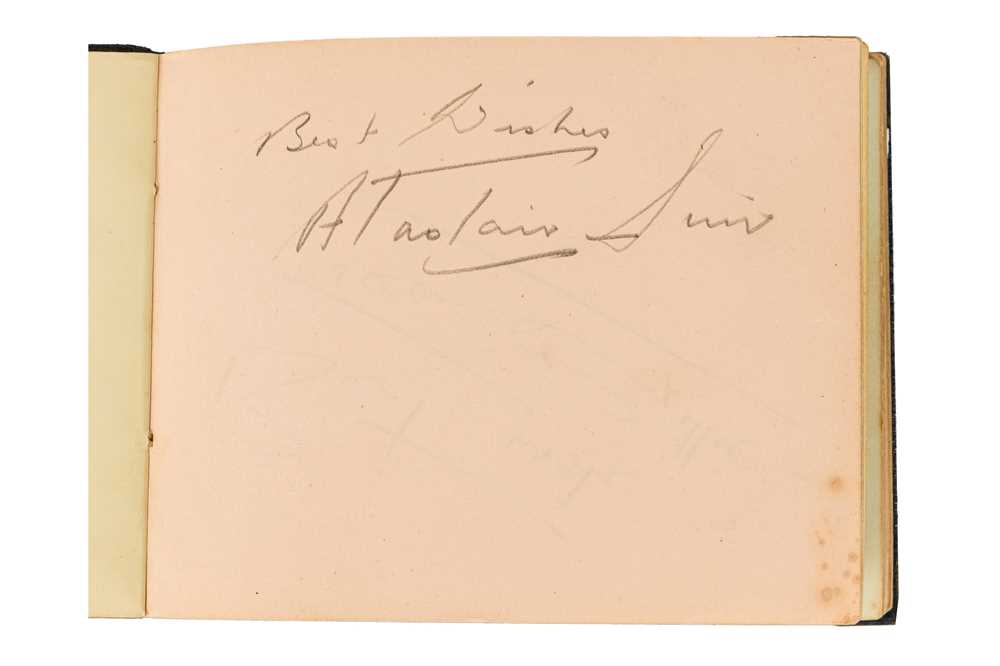 Best Wishes
Alastair Sim